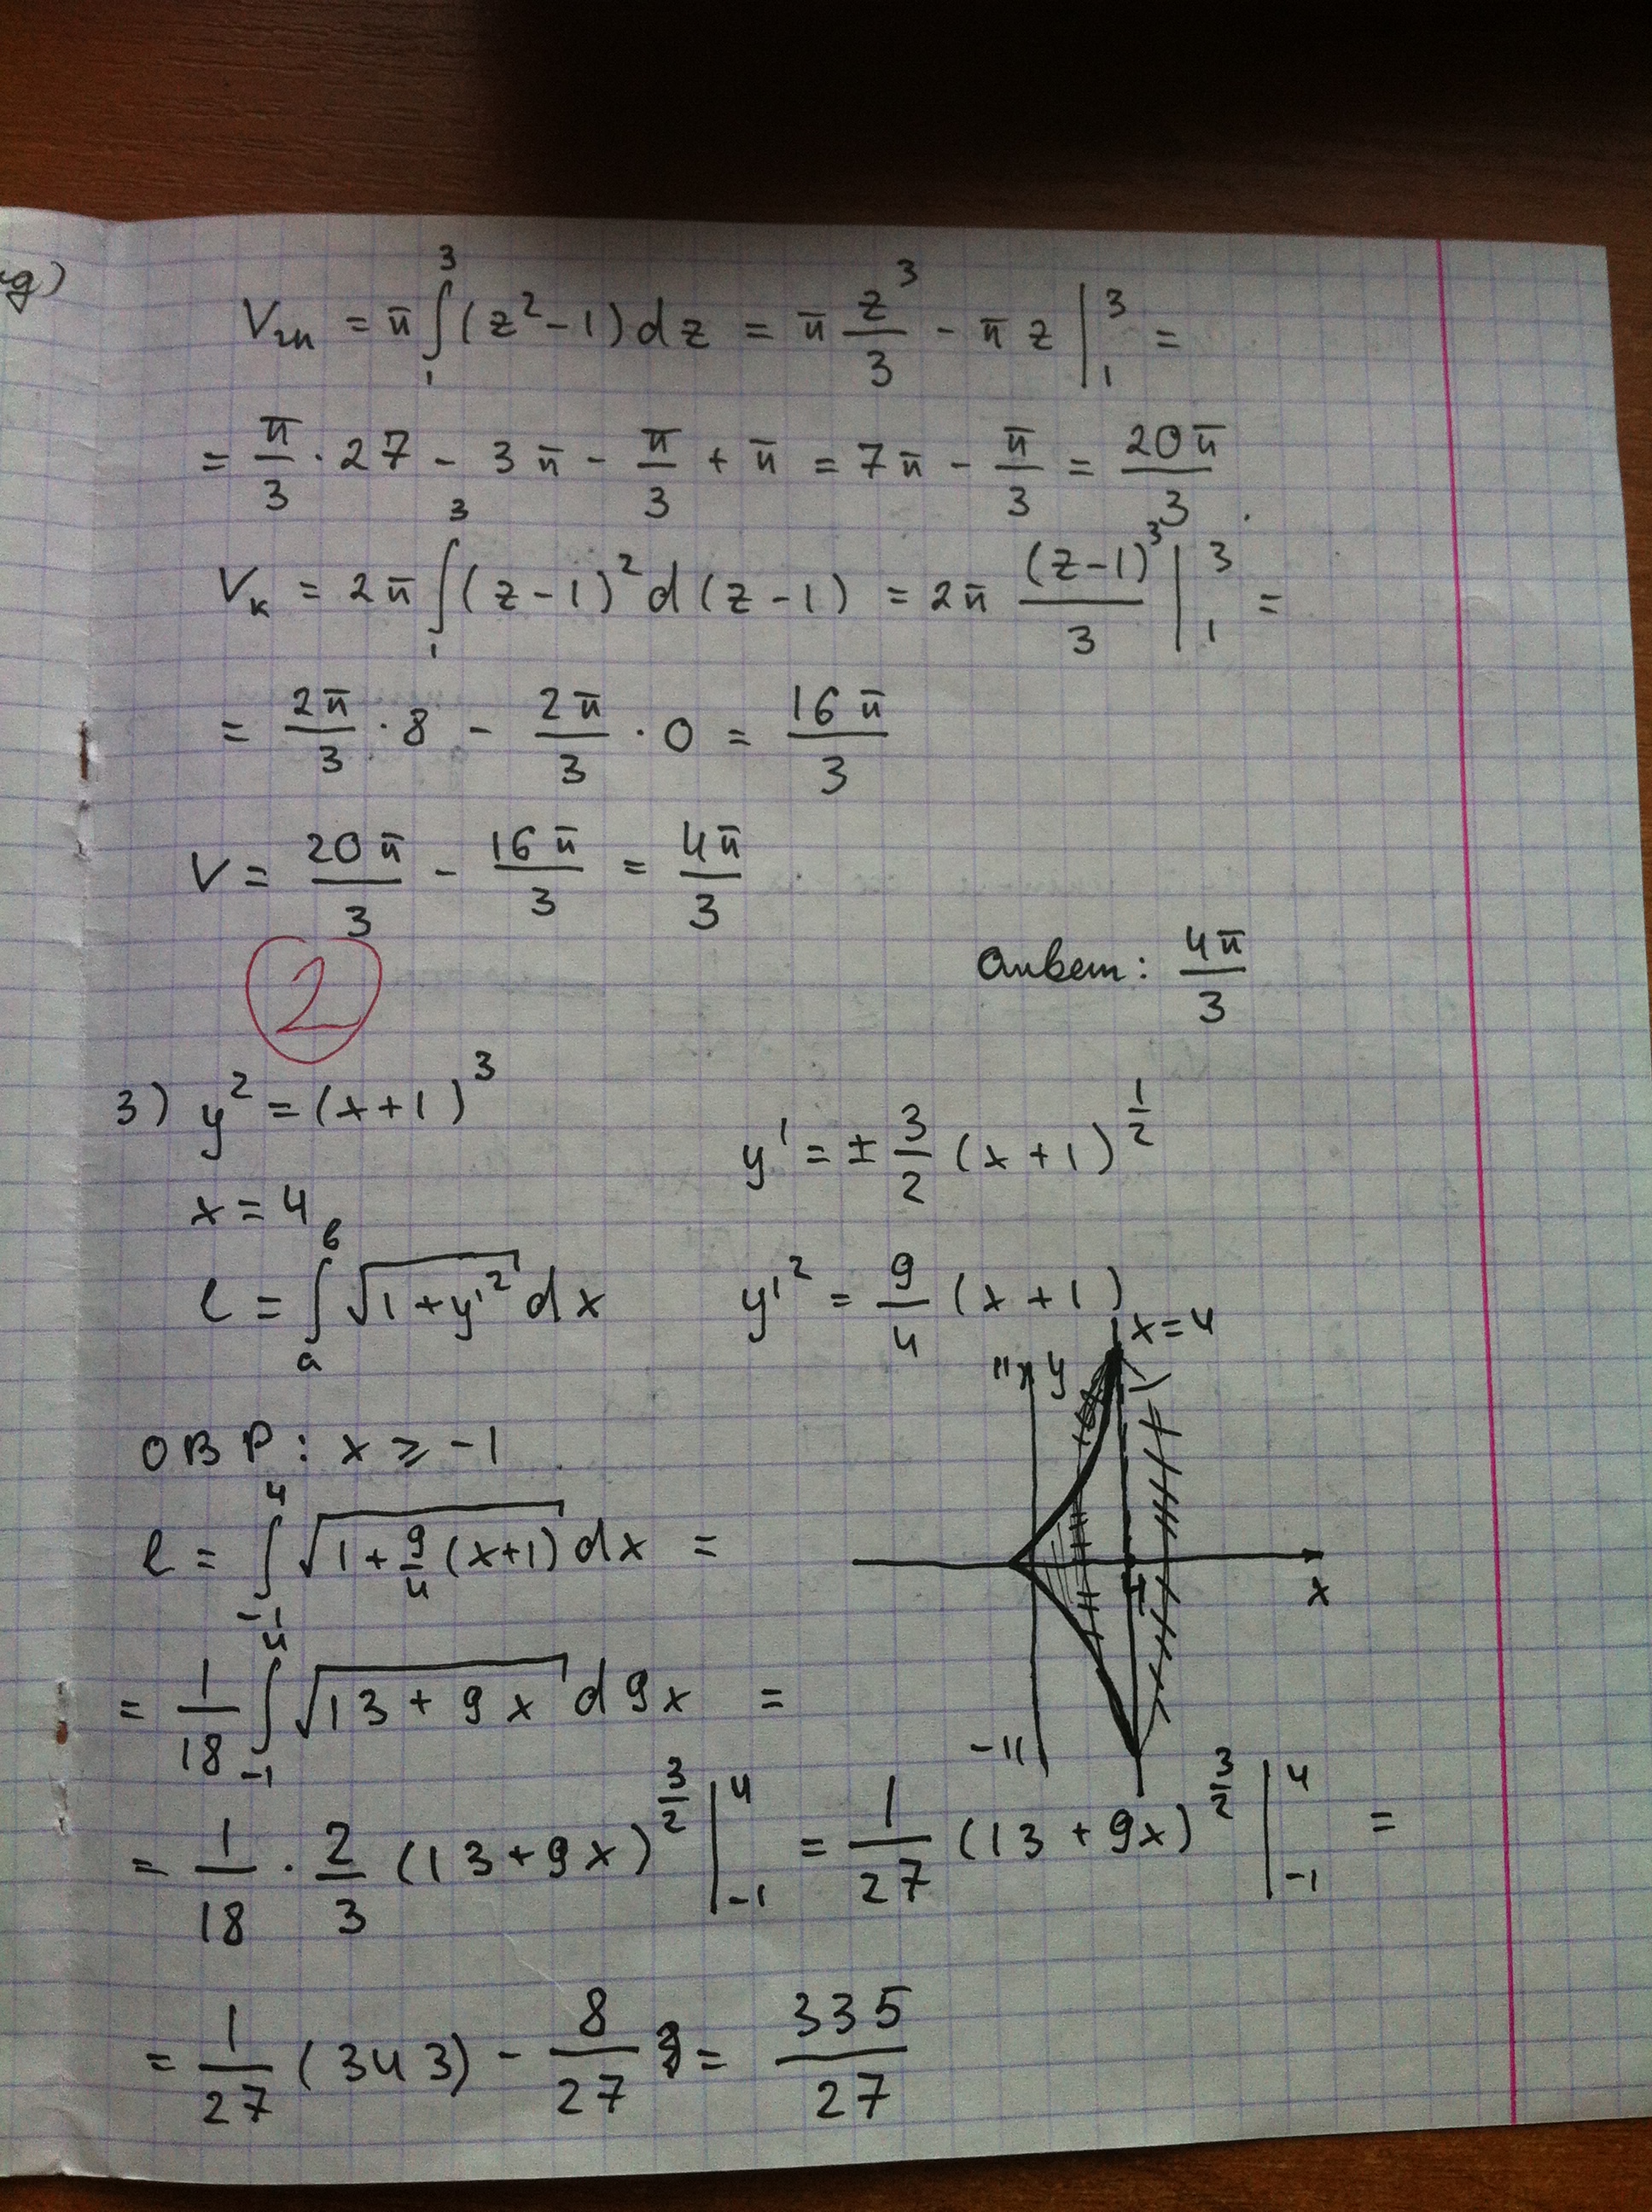 g)
Vгп = π∫₁³ (z² – 1) dz = π z³/3 – π z |₁³ =
= π/3 · 27 – 3π – π/3 + π = 7π – π/3 = 20π/3 .
Vк = 2π∫₁³ (z – 1)² d (z – 1) = 2π (z–1)³/3 |₁³ =
= 2π/3 · 8 – 2π/3 · 0 = 16π/3
V = 20π/3 – 16π/3 = 4π/3
Ответ: 4π/3
2
3) y² = (x+1)³
y' = ± 3/2 (x + 1)^(1/2)
x = 4
l = ∫ₐᵇ √(1 + y'²) dx
y'² = 9/4 (x + 1)
x = 4
11
y
ОВР: x ≥ –1
l = ∫₋₁⁴ √(1 + 9/4 (x+1)) dx =
4
x
= 1/18 ∫₋₁⁴ √(13 + 9x) d9x =
–11
= 1/18 · 2/3 (13 + 9x)^(3/2) |₋₁⁴ = 1/27 (13 + 9x)^(3/2) |₋₁⁴ =
= 1/27 (343) – 8/27 = 335/27